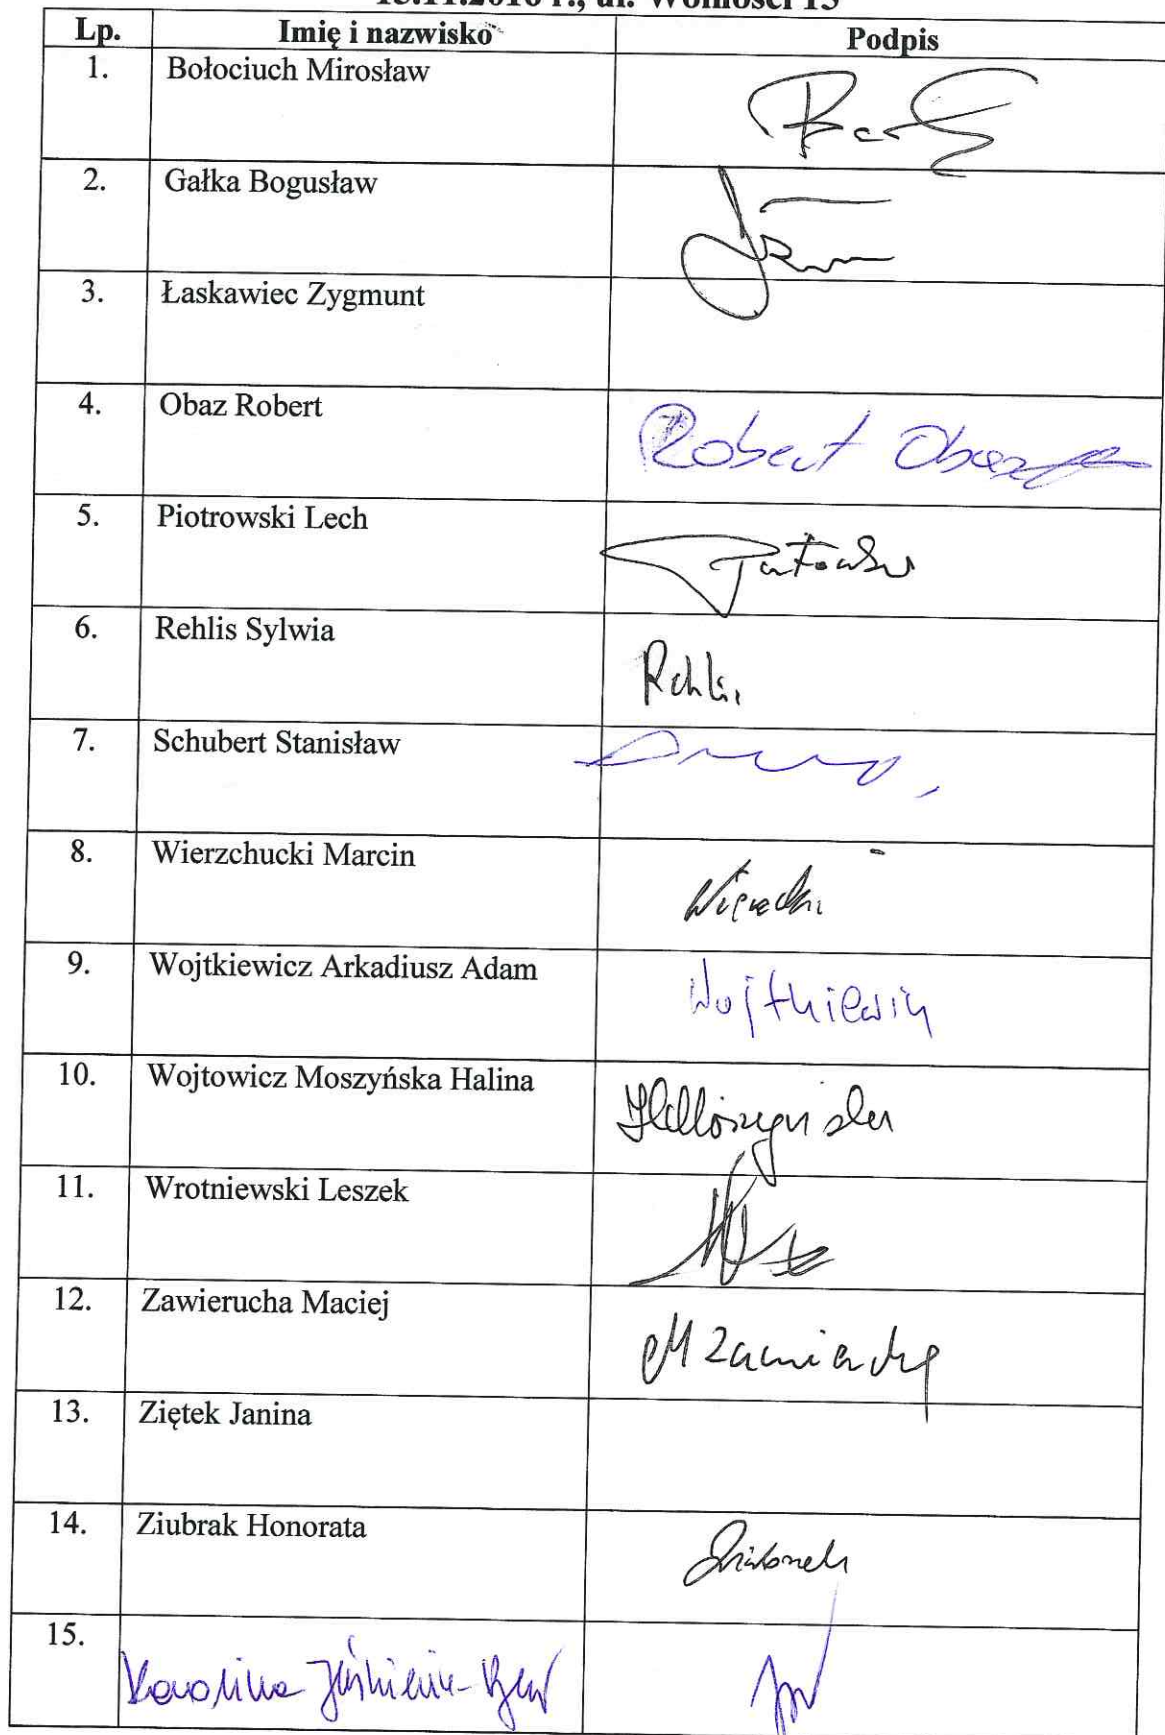 Lp. Imię i nazwisko Podpis
1. Bołociuch Mirosław
2. Gałka Bogusław
3. Łaskawiec Zygmunt
4. Obaz Robert Robert Obaz
5. Piotrowski Lech
6. Rehlis Sylwia Rehlis
7. Schubert Stanisław
8. Wierzchucki Marcin
9. Wojtkiewicz Arkadiusz Adam Wojtkiewicz
10. Wojtowicz Moszyńska Halina HMoszyńska
11. Wrotniewski Leszek
12. Zawierucha Maciej M Zawierucha
13. Ziętek Janina
14. Ziubrak Honorata
15. Karolina